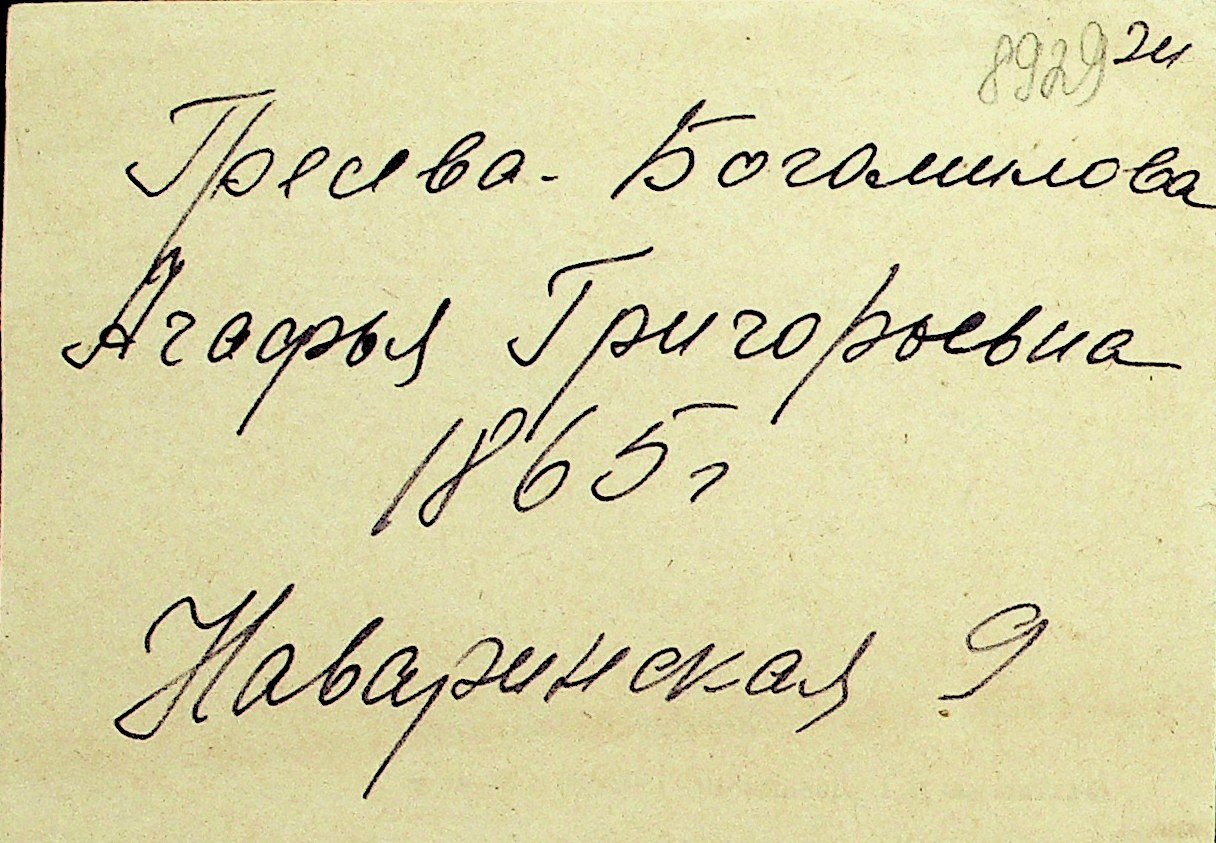 8929 2и
Гресева-Богомилова
Агафья Григорьевна
1865 г
Наваринская 9